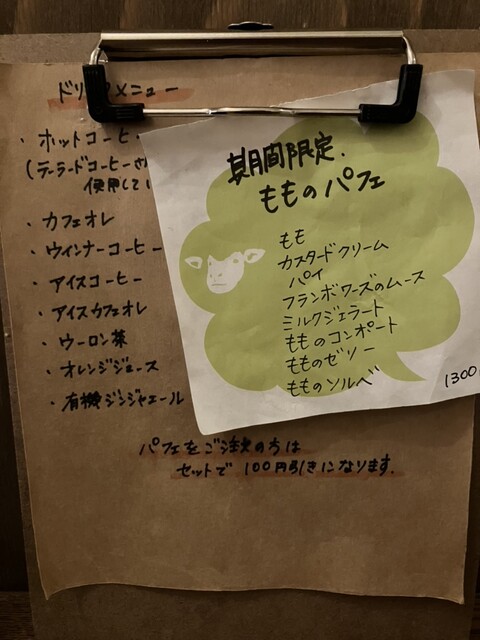 ドリンクメニュー
・ホットコーヒー
(テーラードコーヒーさ
使用してい
・カフェオレ
・ウインナーコーヒー
・アイスコーヒー
・アイスカフェオレ
・ウーロン茶
・オレンジジュース
・有機ジンジャエール
パフェをご注文の方は
セットで100円引きになります.
期間限定.
もものパフェ
もも
カスタードクリーム
パイ
フランボワーズのムース
ミルクジェラート
もものコンポート
もものゼリー
もものソルベ
1300